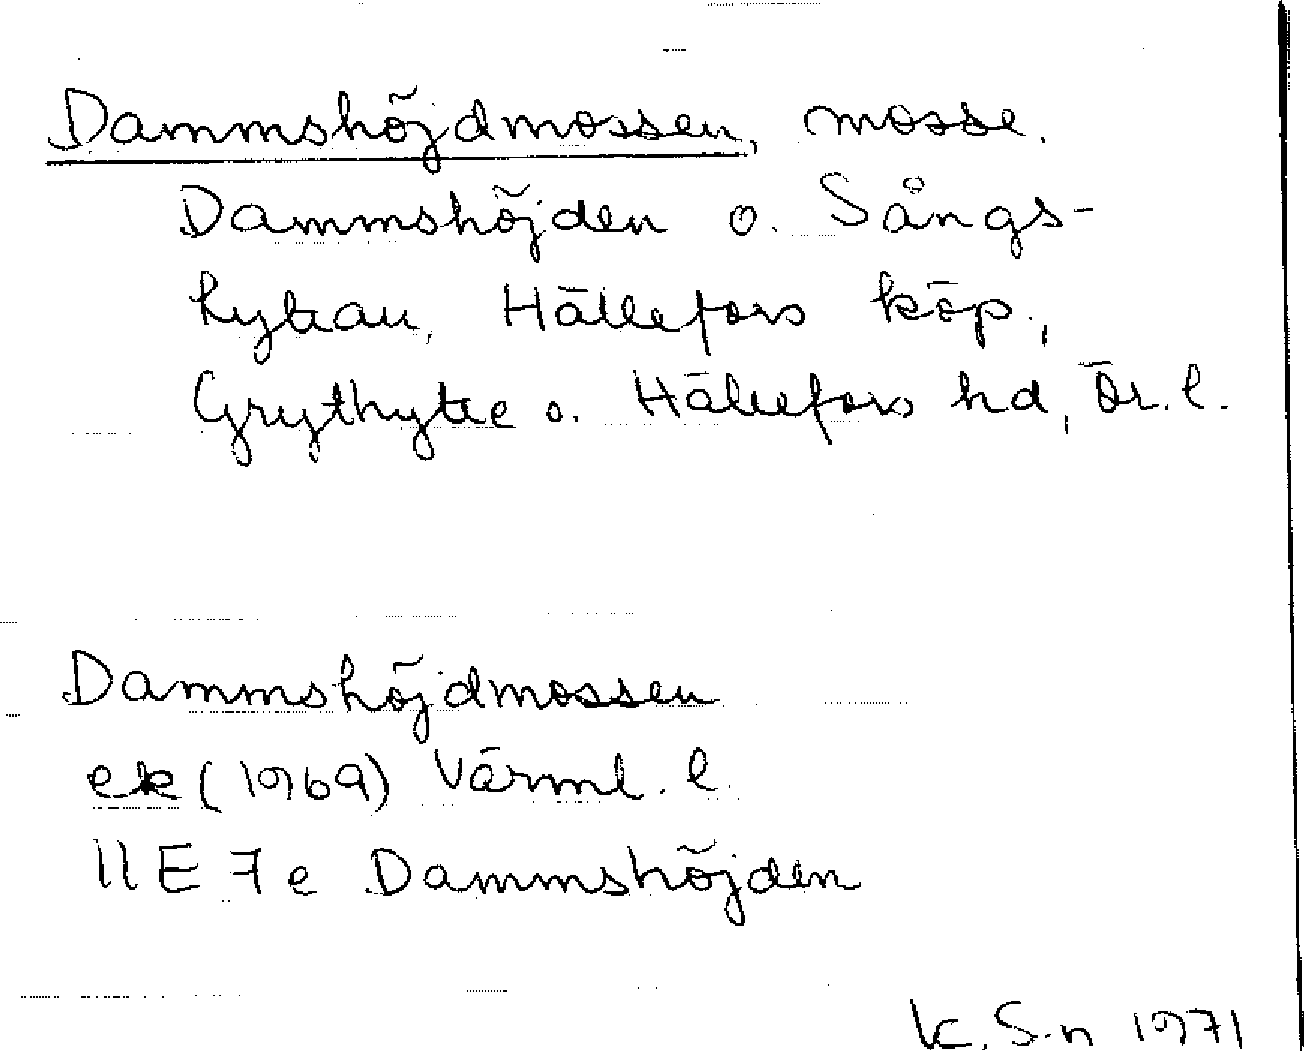 Dammshöjdmossen, mosse.
Dammshöjden o. Sångs-
hyttan, Hällefors köp.,
Grythytte o. Hällefors hd, Ör. l.
Dammshöjdmossen
ek (1969) Värml. l.
11E 7e Dammshöjden
K. S-n 1971